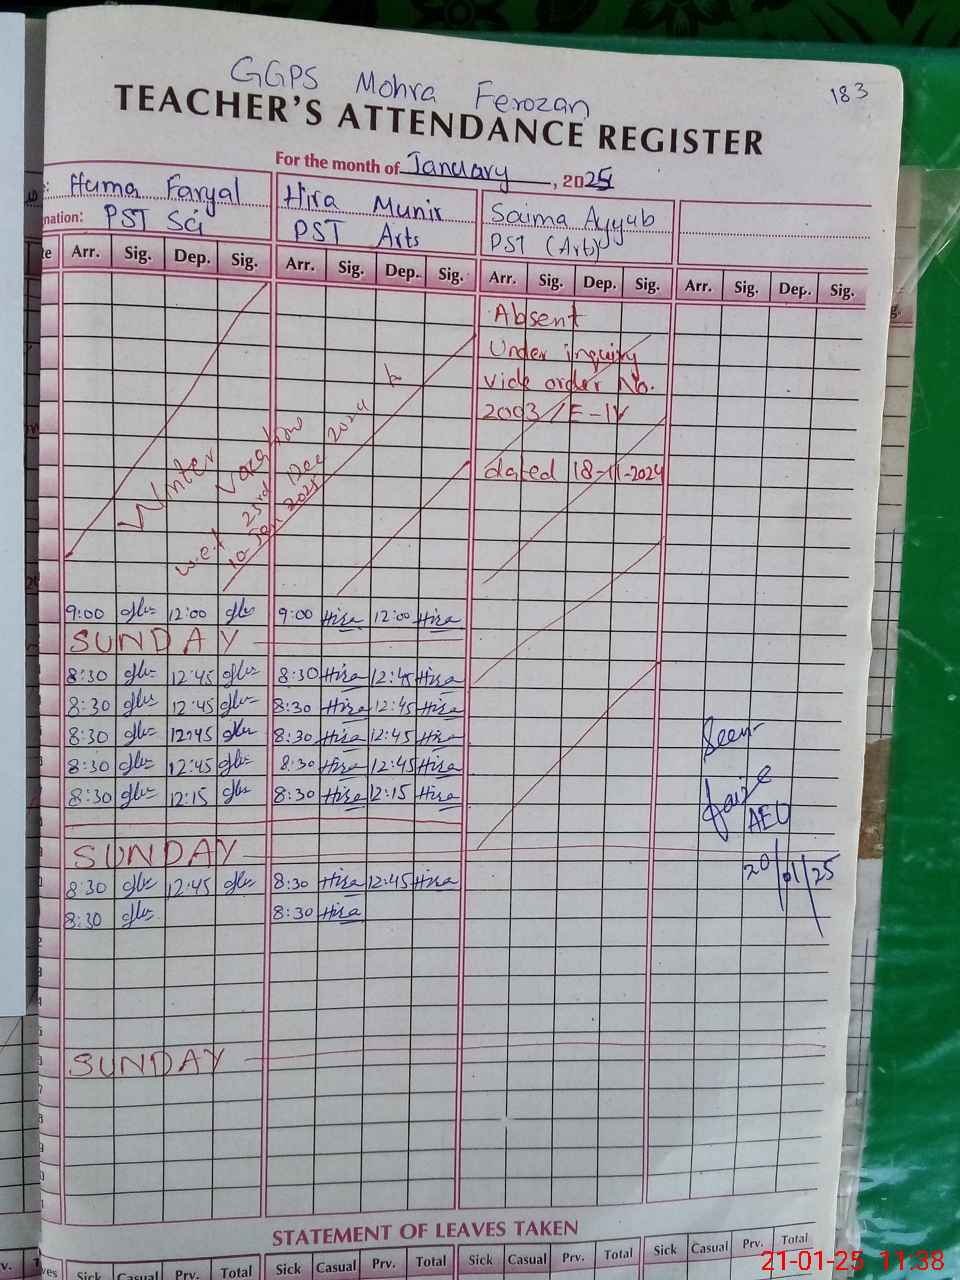 GGPS Mohra Ferozan
183
TEACHER'S ATTENDANCE REGISTER
For the month of January, 2025
Huma Faryal Hira Munir Saima Ayyub
nation: PST Sci PST Arts PST (Arts)
Arr. Sig. Dep. Sig. Arr. Sig. Dep. Sig. Arr. Sig. Dep. Sig. Arr. Sig. Dep. Sig.
Absent
Under inquiry
vide order No.
2003/E-IV
dated 18-11-2024
Winter Vacations
w.e.f 23rd Dec 2024 to
10 Jan 2025
9:00 12:00 9:00 Hira 12:00 Hira
SUNDAY
8:30 12:45 8:30 Hira 12:45 Hira
8:30 12:45 8:30 Hira 12:45 Hira
8:30 12:45 8:30 Hira 12:45 Hira
8:30 12:45 8:30 Hira 12:45 Hira
8:30 12:15 8:30 Hira 12:15 Hira
SUNDAY
8:30 12:45 8:30 Hira 12:45 Hira
8:30 8:30 Hira
Seen
AEO
20/01/25
SUNDAY
STATEMENT OF LEAVES TAKEN
Sick Casual Prv. Total Sick Casual Prv. Total Sick Casual Prv. Total Sick Casual Prv. Total
21-01-25 11:38